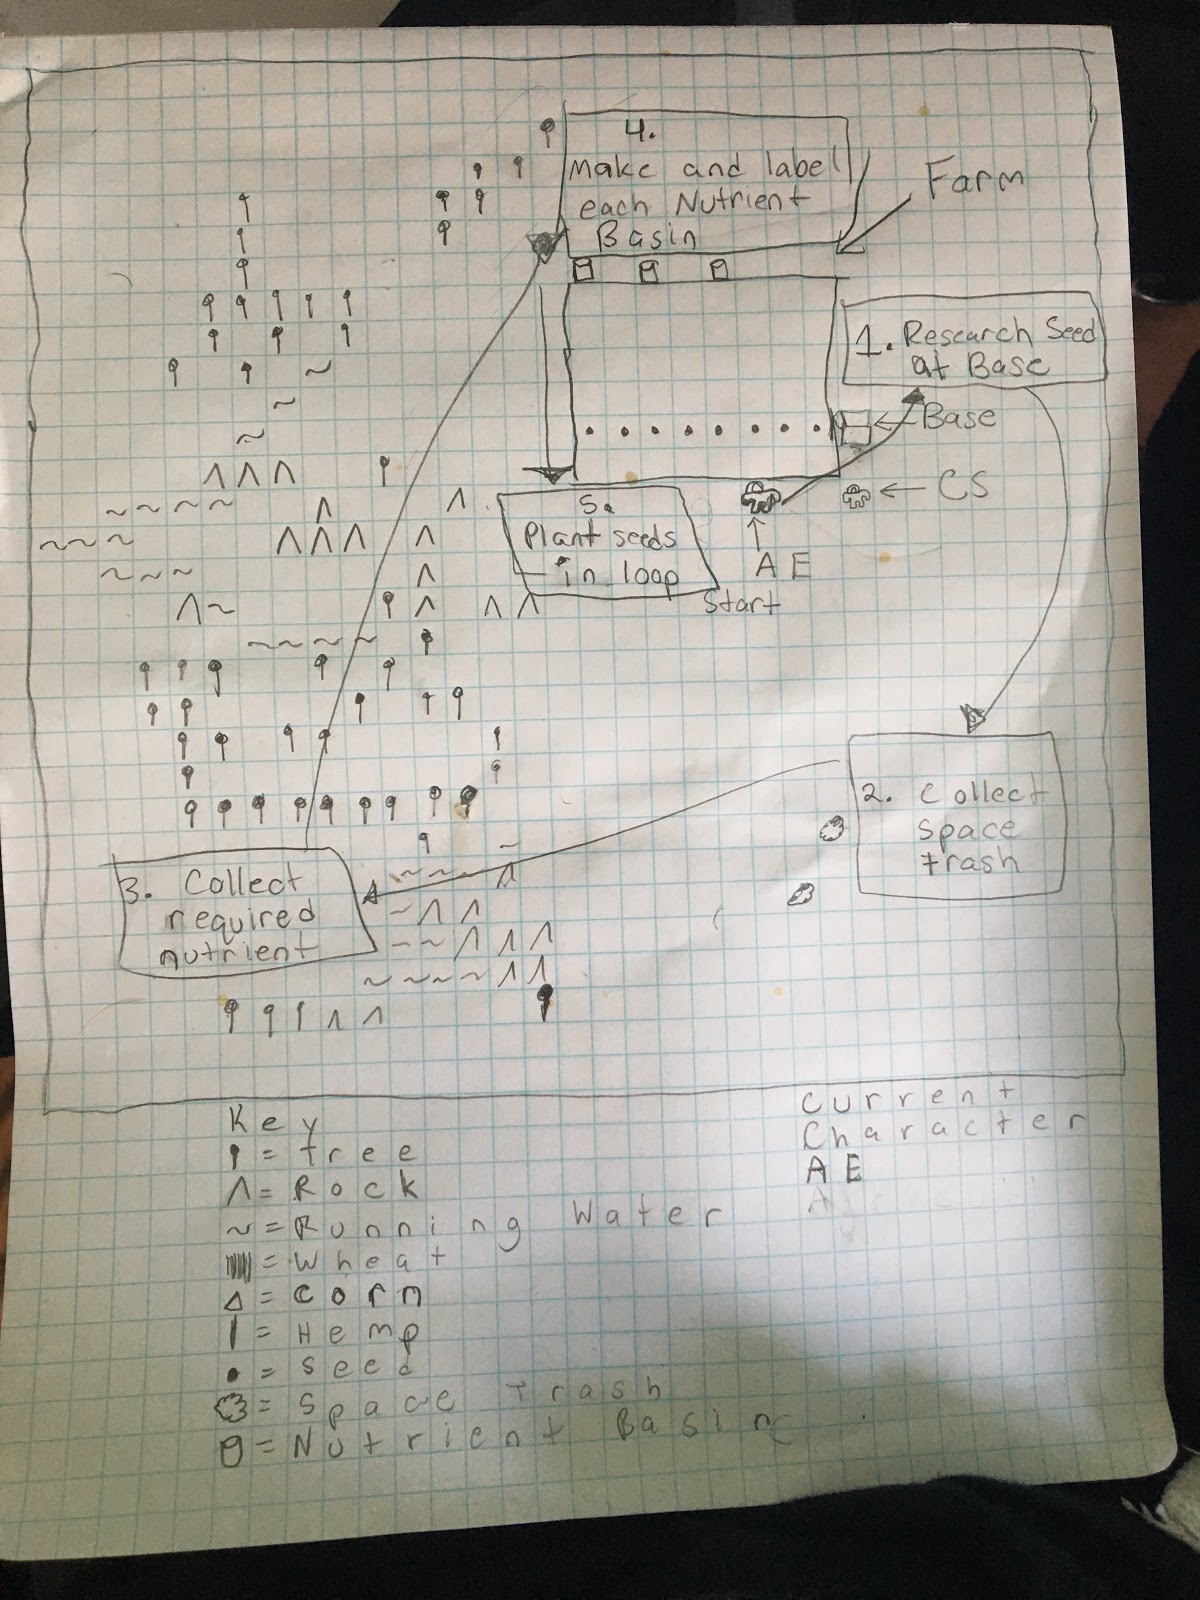 4.
Make and label
each Nutrient
Basin
Farm
1. Research Seed
at Base
Base
CS
5.
Plant seeds
in loop
AE
Start
2. Collect
space
trash
3. Collect
required
nutrient
Key
= tree
= Rock
~ = Running Water
= Wheat
= corn
= Hemp
= seed
= Space Trash
= Nutrient Basin
Current
Character
AE